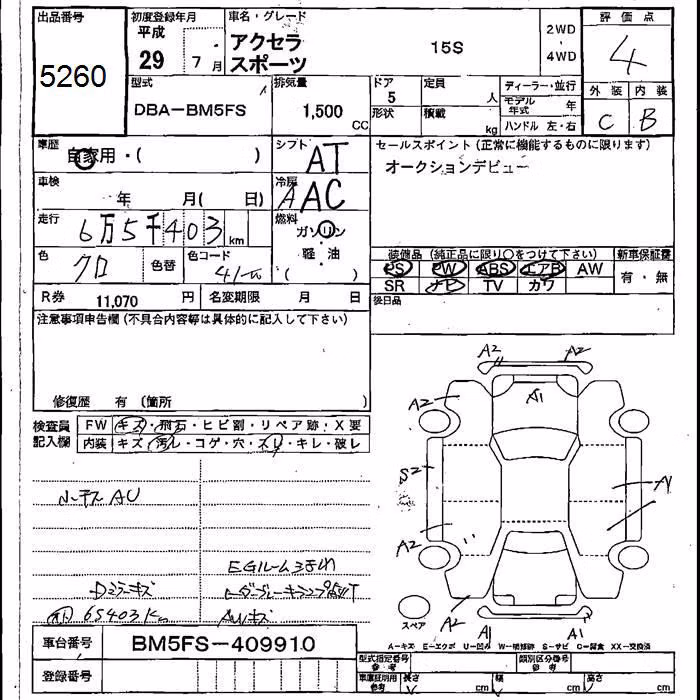 出品番号
5260
初度登録年月
平成
29 ・ 7月
車名・グレード
アクセラ
スポーツ
15S
2WD
・
4WD
評価点
4
型式
DBA-BM5FS
排気量
1,500
CC
ドア
5
形状
定員
人
積載
kg
ディーラー・並行
モデル年式 年
ハンドル 左・右
外装
C
内装
B
車歴
自家用・( )
シフト
AT
セールスポイント(正常に機能するものに限ります)
オークションデビュー
車検
年 月( 日)
冷房
AAC
走行
6万5千403
km
燃料
ガソリン
軽・油
( )
色
クロ
色替
色コード
41W
装備品(純正品に限り○をつけて下さい)
新車保証書
PS PW ABS エアB AW
SR ナビ TV カワ
有・無
R券 11,070 円
名変期限 月 日
後日品
注意事項申告欄(不具合内容等は具体的に記入して下さい)
修復歴 有(箇所 )
検査員
記入欄
FW キズ・飛石・ヒビ割・リペア跡・X要
内装 キズ・汚レ・コゲ・穴・スレ・キレ・破レ
小キズ AU
EGルーム
Dミラーキズ
65403Km
AWキズ
A2
A2
A2
A1
S2
A2
A2
A1
A1
スペア
A=キズ E=エクボ U=凹ミ W=補修跡 S=サビ C=腐食 XX=交換済
車台番号
BM5FS-409910
登録番号
型式指定番号
参考
類別区分番号
参考
車庫証明用
参考
長さ cm
幅 cm
高さ cm